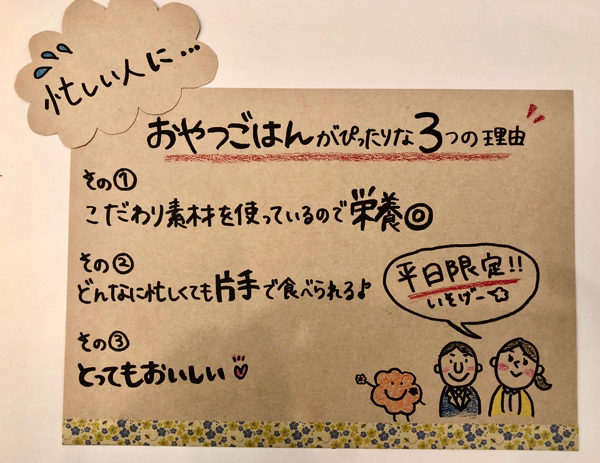 忙しい人に…
おやつごはんがぴったりな3つの理由
その①
こだわり素材を使っているので栄養◎
その②
どんなに忙しくても片手で食べられる♪
その③
とってもおいしい
平日限定!!
いそげー☆